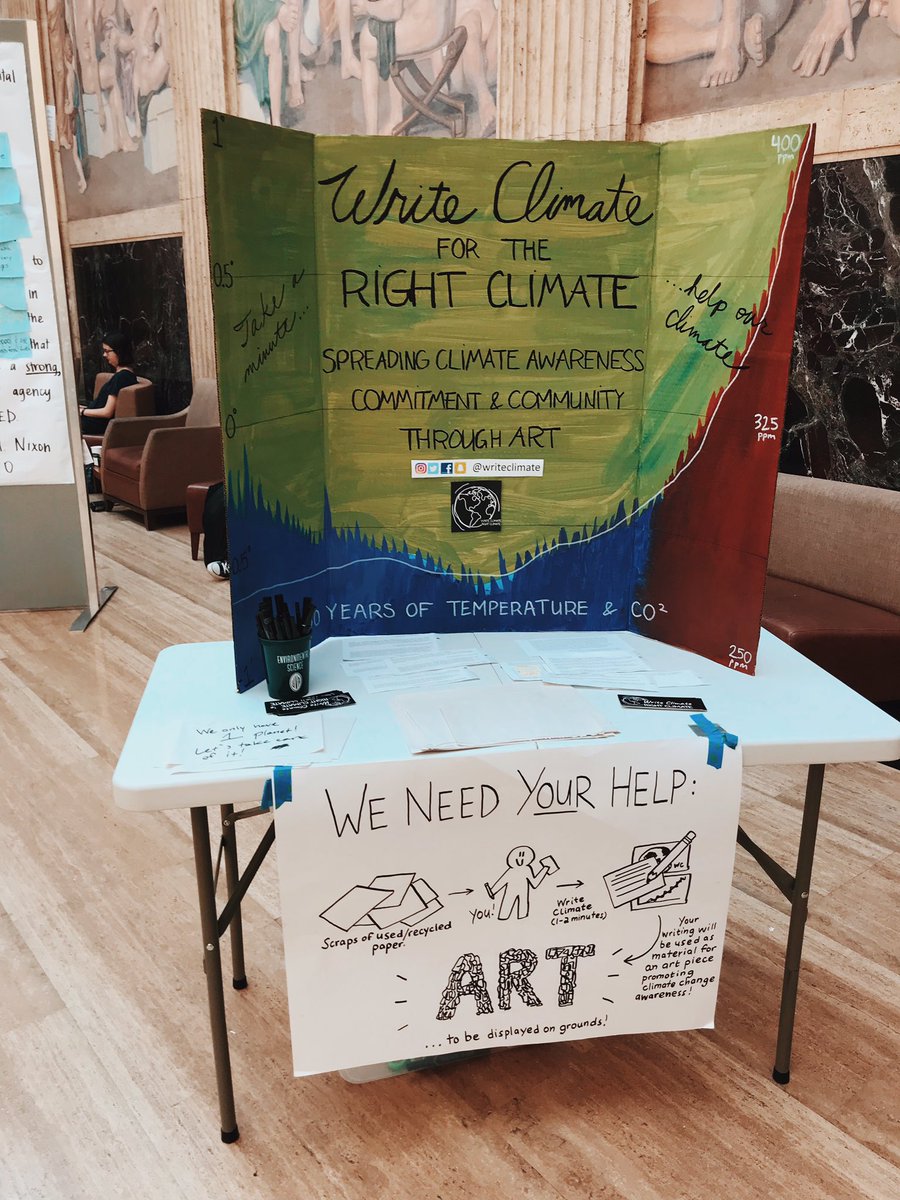 Write Climate
FOR THE
RIGHT CLIMATE
SPREADING CLIMATE AWARENESS
COMMITMENT & COMMUNITY
THROUGH ART
@writeclimate
WRITE CLIMATE
RIGHT CLIMATE
1°
0.5°
Take a
minute...
0°
...help our
climate
400
ppm
325
ppm
250
ppm
YEARS OF TEMPERATURE & CO²
ENVIRONMENTAL
SCIENCE
We only have
1 planet!
Let's take care
of it!
Write Climate
WE NEED YOUR HELP:
Scraps of used/recycled
paper.
You!
Write
Climate
(1-2 minutes)
WC
Your
writing will
be used as
material for
an art piece
promoting
climate change
awareness!
ART
...to be displayed on grounds!
to
in
the
that
a strong,
agency
Nixon